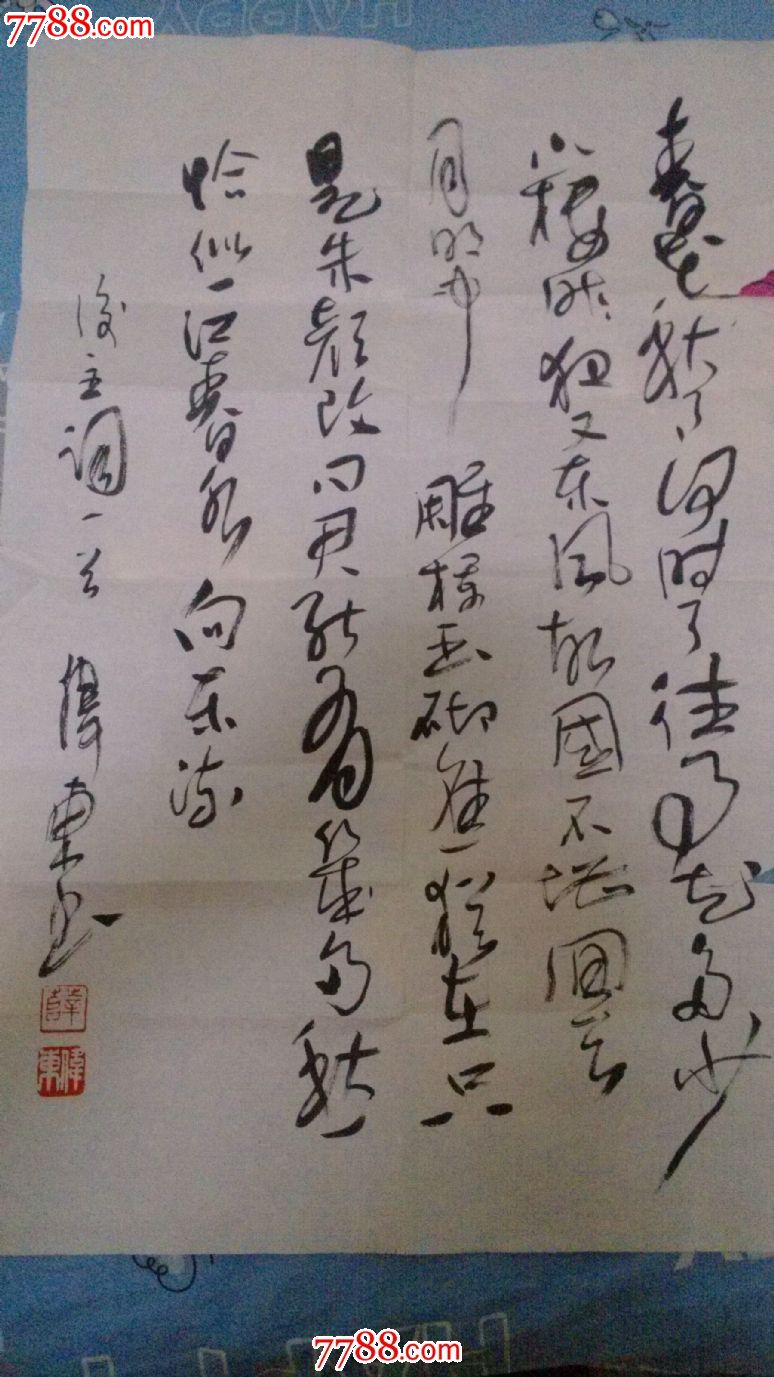 7788.com
春花秋月何时了往事知多少
小楼昨夜又东风故國不堪回首
月明中 雕栏玉砌應猶在只
是朱颜改问君能有幾多愁
恰似一江春水向东流
後主词一首 偉東书
薛
偉東
7788.com